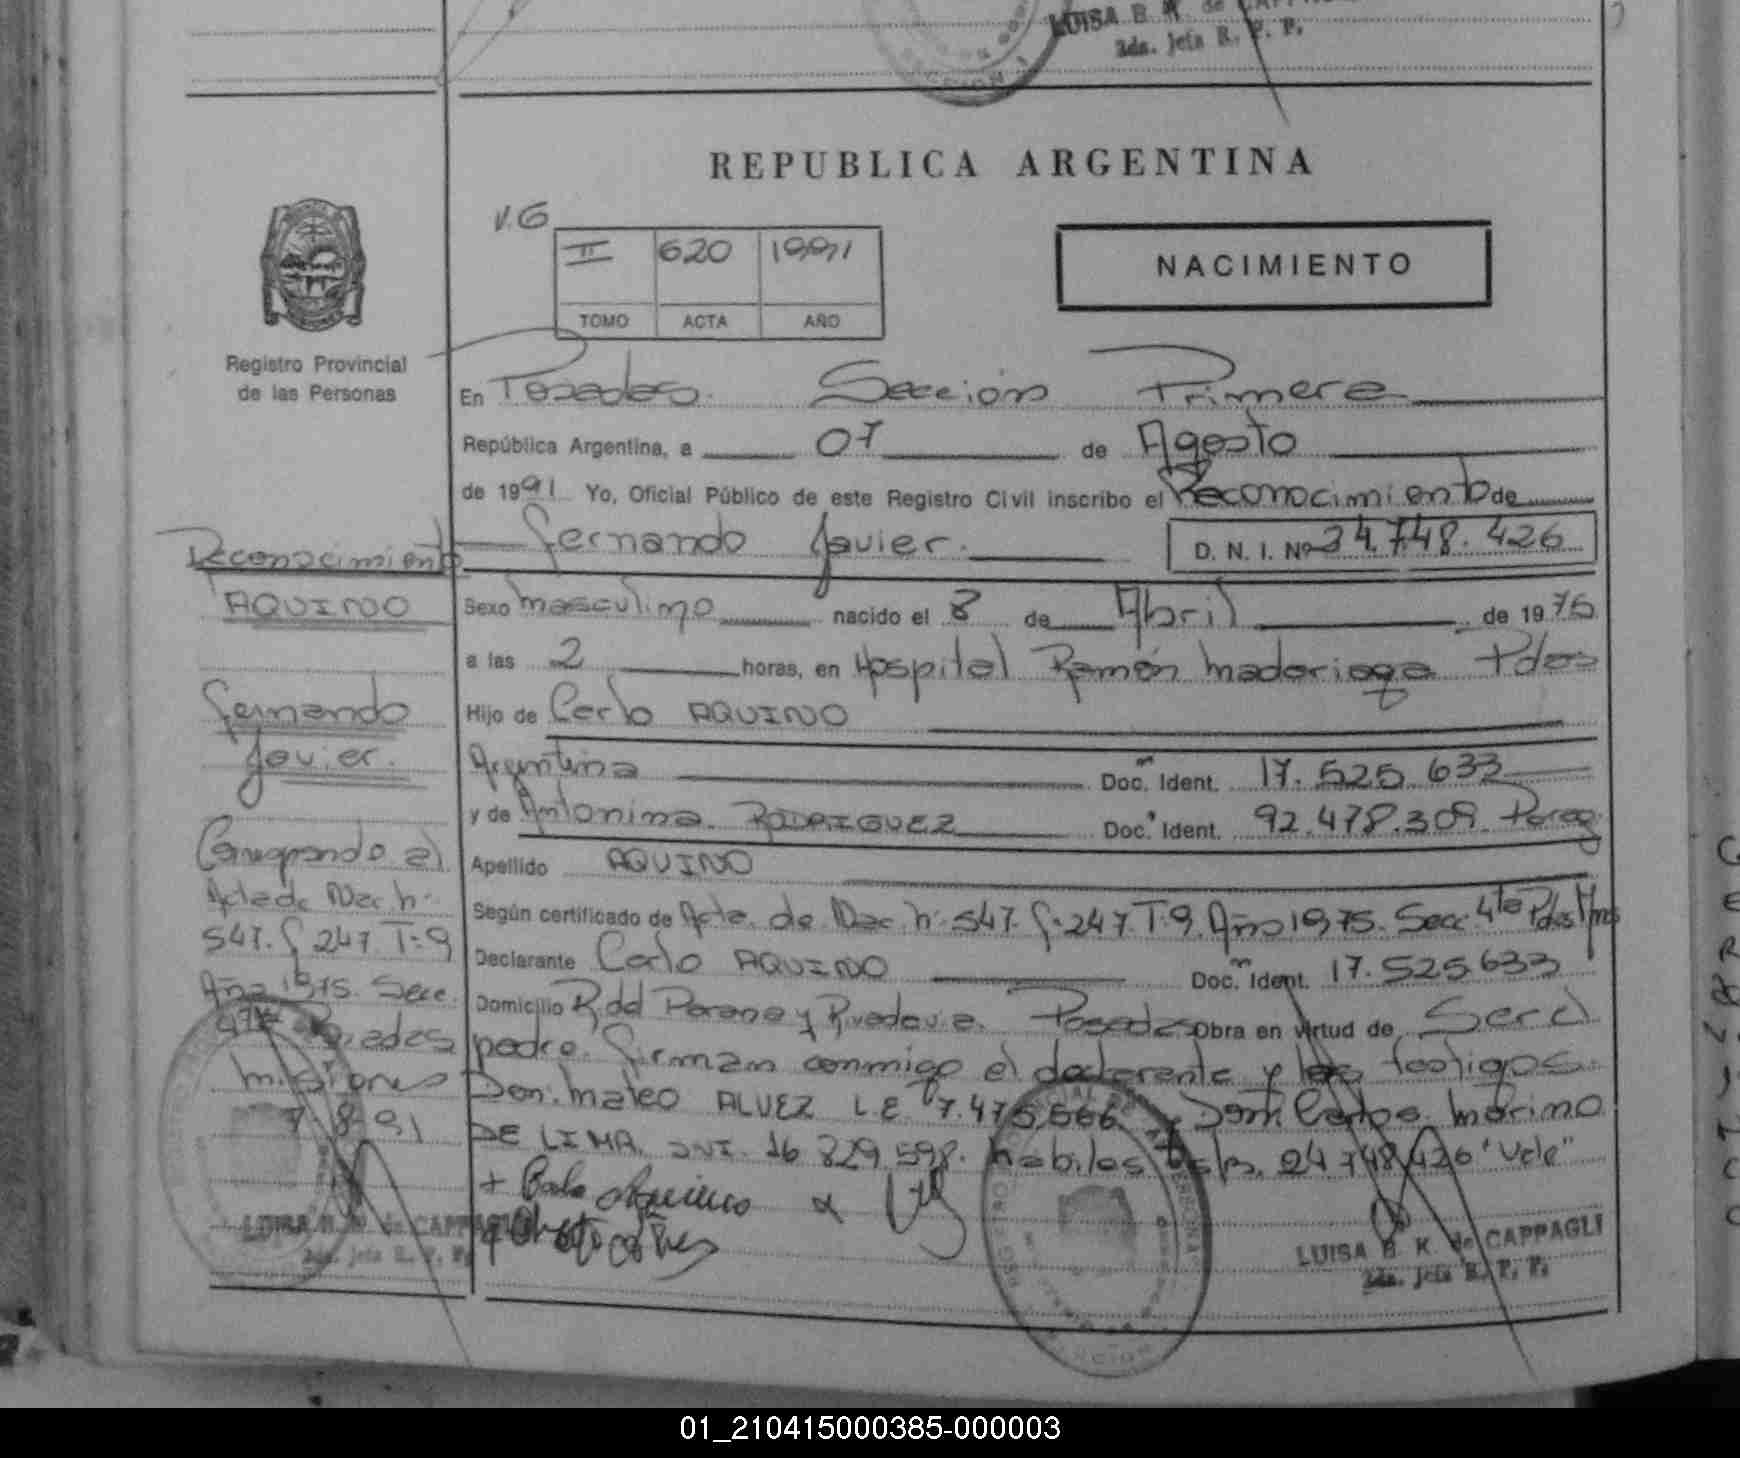 LUISA B. K. de
2da. Jefa R. P. P.
REPUBLICA ARGENTINA
V.G
II 620 1991
TOMO ACTA AÑO
NACIMIENTO
Registro Provincial
de las Personas
En Posadas. Sección Primera
República Argentina, a 07 de Agosto
de 1991 Yo, Oficial Público de este Registro Civil inscribo el Reconocimiento de
Fernando Javier. D. N. I. Nº 24.748.426
Sexo masculino nacido el 8 de Abril de 1975
a las 2 horas, en Hospital Ramón Madariaga Pdas
Hijo de Carlo AQUINO
Argentina Doc. Ident. 17.525.633
y de Antonina RODRIGUEZ Doc. Ident. 92.478.309 Parag
Apellido AQUINO
Según certificado de Acta de Nac. Nº 547. F. 247. T. 9. Año 1975. Secc. 4ta Pdas Mnes
Declarante Carlo AQUINO Doc. Ident. 17.525.633
Domicilio Rdd Parana y Rivadavia. Posadas Obra en virtud de Ser el
padre. Firman conmigo el declarante y los testigos.
Don: Mateo ALVEZ L.E 7.475.566 y Don Carlos Marino
DE LIMA, DNI. 16 829 598. habiles S/R. 24 748 426 "Vale"
+ Carlo Aquino
LUISA B. K. de CAPPAGLI
2da. Jefa R. P. P.
Reconocimiento
AQUINO
Fernando
Javier.
Corresponde al
Acta de Nac Nº
547. F 247. T. 9
Año 1975. Secc.
4ta Posadas
Misiones
7-8-91
LUISA B. K. de CAPPAGLI
2da. Jefa R. P. P.
01_210415000385-000003